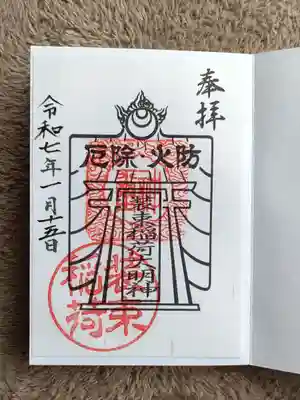 奉拝
防火・除厄
装束稲荷大明神
装束稲荷
令和七年一月十五日